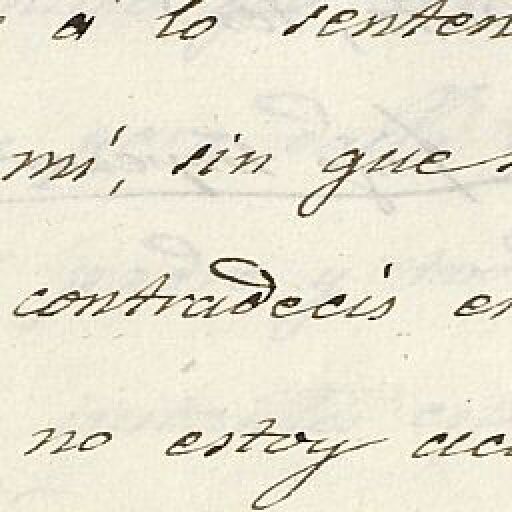 á lo senten
mí, sin que
contradecis en
no estoy aca